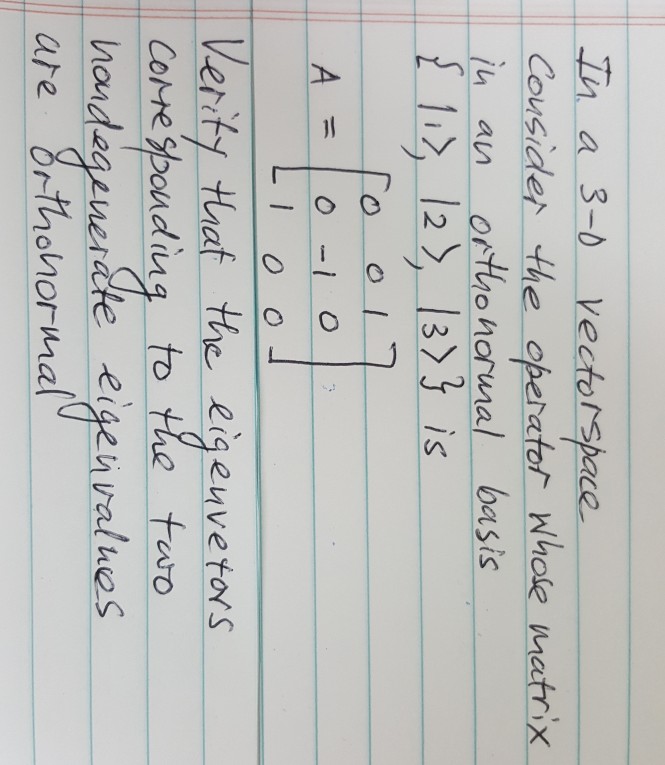 In a 3-D vectorspace
Consider the operator whose matrix
in an orthonormal basis
{ |1>, |2>, |3>} is
A = [ 0 0 1
0 -1 0
1 0 0 ]
Verify that the eigenvetors
corresponding to the two
nondegenerate eigenvalues
are orthonormal